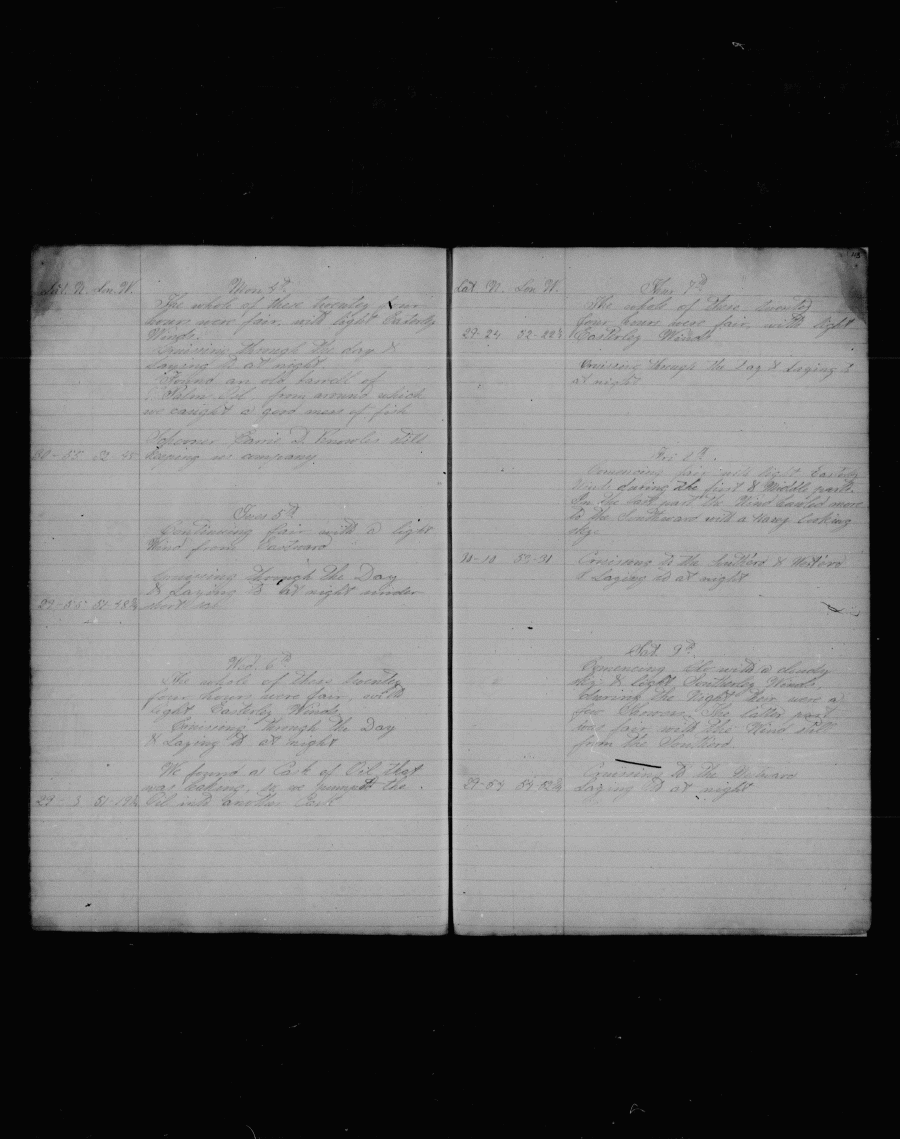 Lat. N. Lon. W.
Mon 4th
The whole of these twenty four
hours were fair, with light Easterly
Winds.
Cruising through the day &
Laying to at night.
Found an old barrell of
Palm Oil from around which
we caught a good mess of fish
Schooner Carrie D. Knowles still
30-55 52-45 keeping in company
Tues 5th
Continuing fair with a light
Wind from Eastward
Cruising through the Day
& Laying to at night under
short sail
Wed. 6th
The whole of these twenty
four hours were fair, with
light Easterly Winds
Cruising through the Day
& Laying to at night
We found a Cask of Oil that
was leaking, so we pumpt the
Oil into another Cask
Lat N. Lon W.
Thur 7th
The whole of these twenty
four hours were fair, with light
29-24 52-22½ Easterley Winds
Cruising through the day & Laying to
at night
Fri 8th.
Comencing fair with light Easterly
Winds during the first & Middle parts.
In the last part the Wind hauled more
to the Southward with a heavy looking
sky.
Cruising to the Southerd & Westerd
& Laying to at night
Sat. 9th.
Comencing with a cloudy
sky & light Southerley Winds.
During the Night there were a
few Showers. The latter part
was fair with the Wind still
from the Southerd.
Cruising to the
Laying to at night